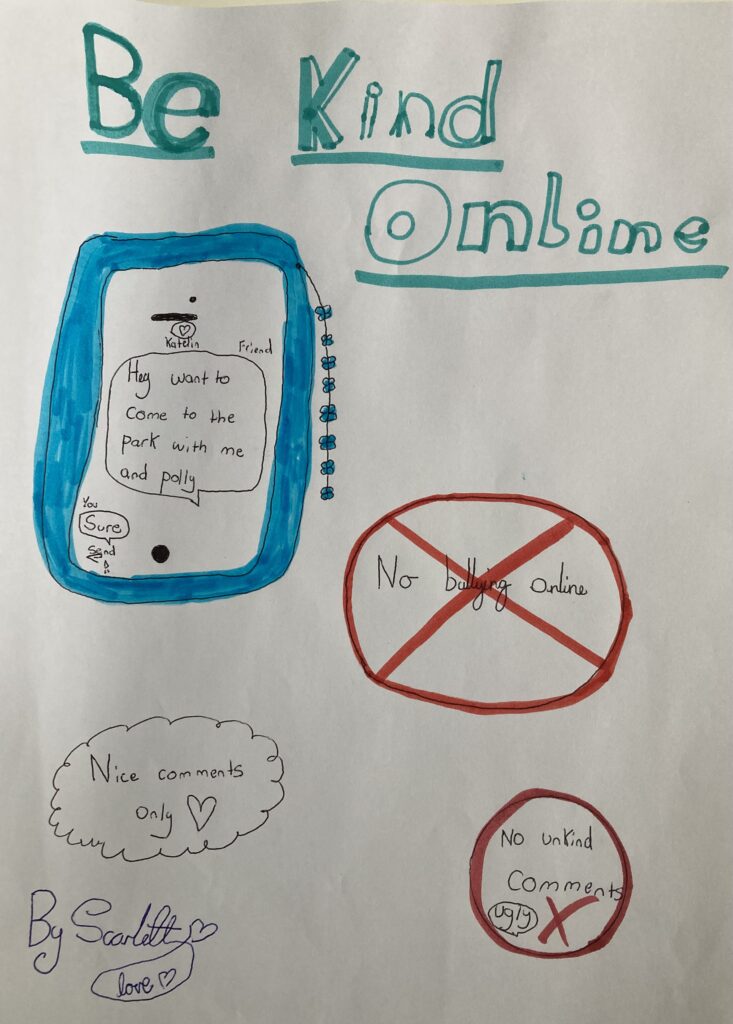 Be Kind
Online
Katelin
Friend
Hey want to
come to the
park with me
and polly
You
Sure
Send
No bullying online
Nice comments
only
No unkind
Comments
ugly
By Scarlett
love